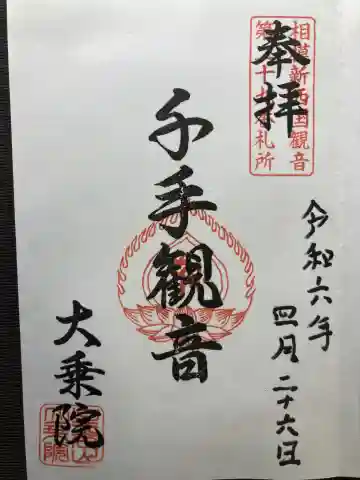 奉拝
相模新西国観音
札所
令和六年
四月二十六日
千手観音
大乗院